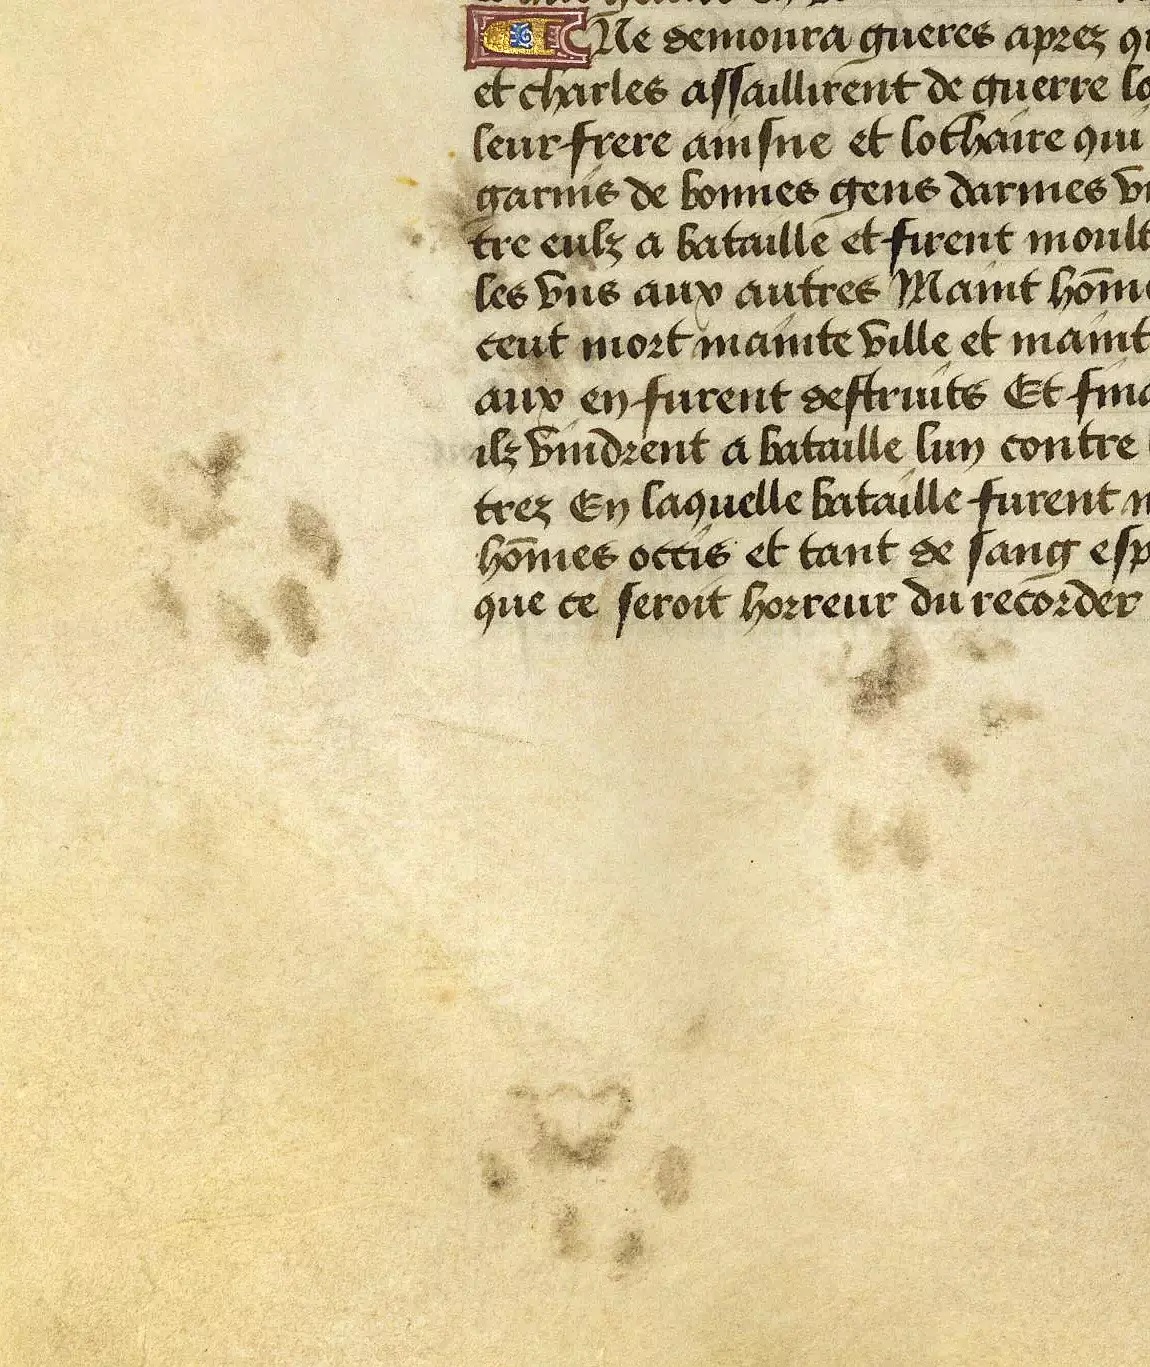 Ne demoura gueres aprez
et charles assaillirent de guerre
leur frere ainsne et lothaire qui
garnis de bonnes gens darmes
tre eulz a bataille et firent moult
les vns aux autres Maint hōme
ceut mort mainte ville et maint
aux en furent destruits Et
ilz vindrent a bataille lun contre
trez En laquelle bataille furent
hōmes occis et tant de sang
que ce seroit horreur du recorder